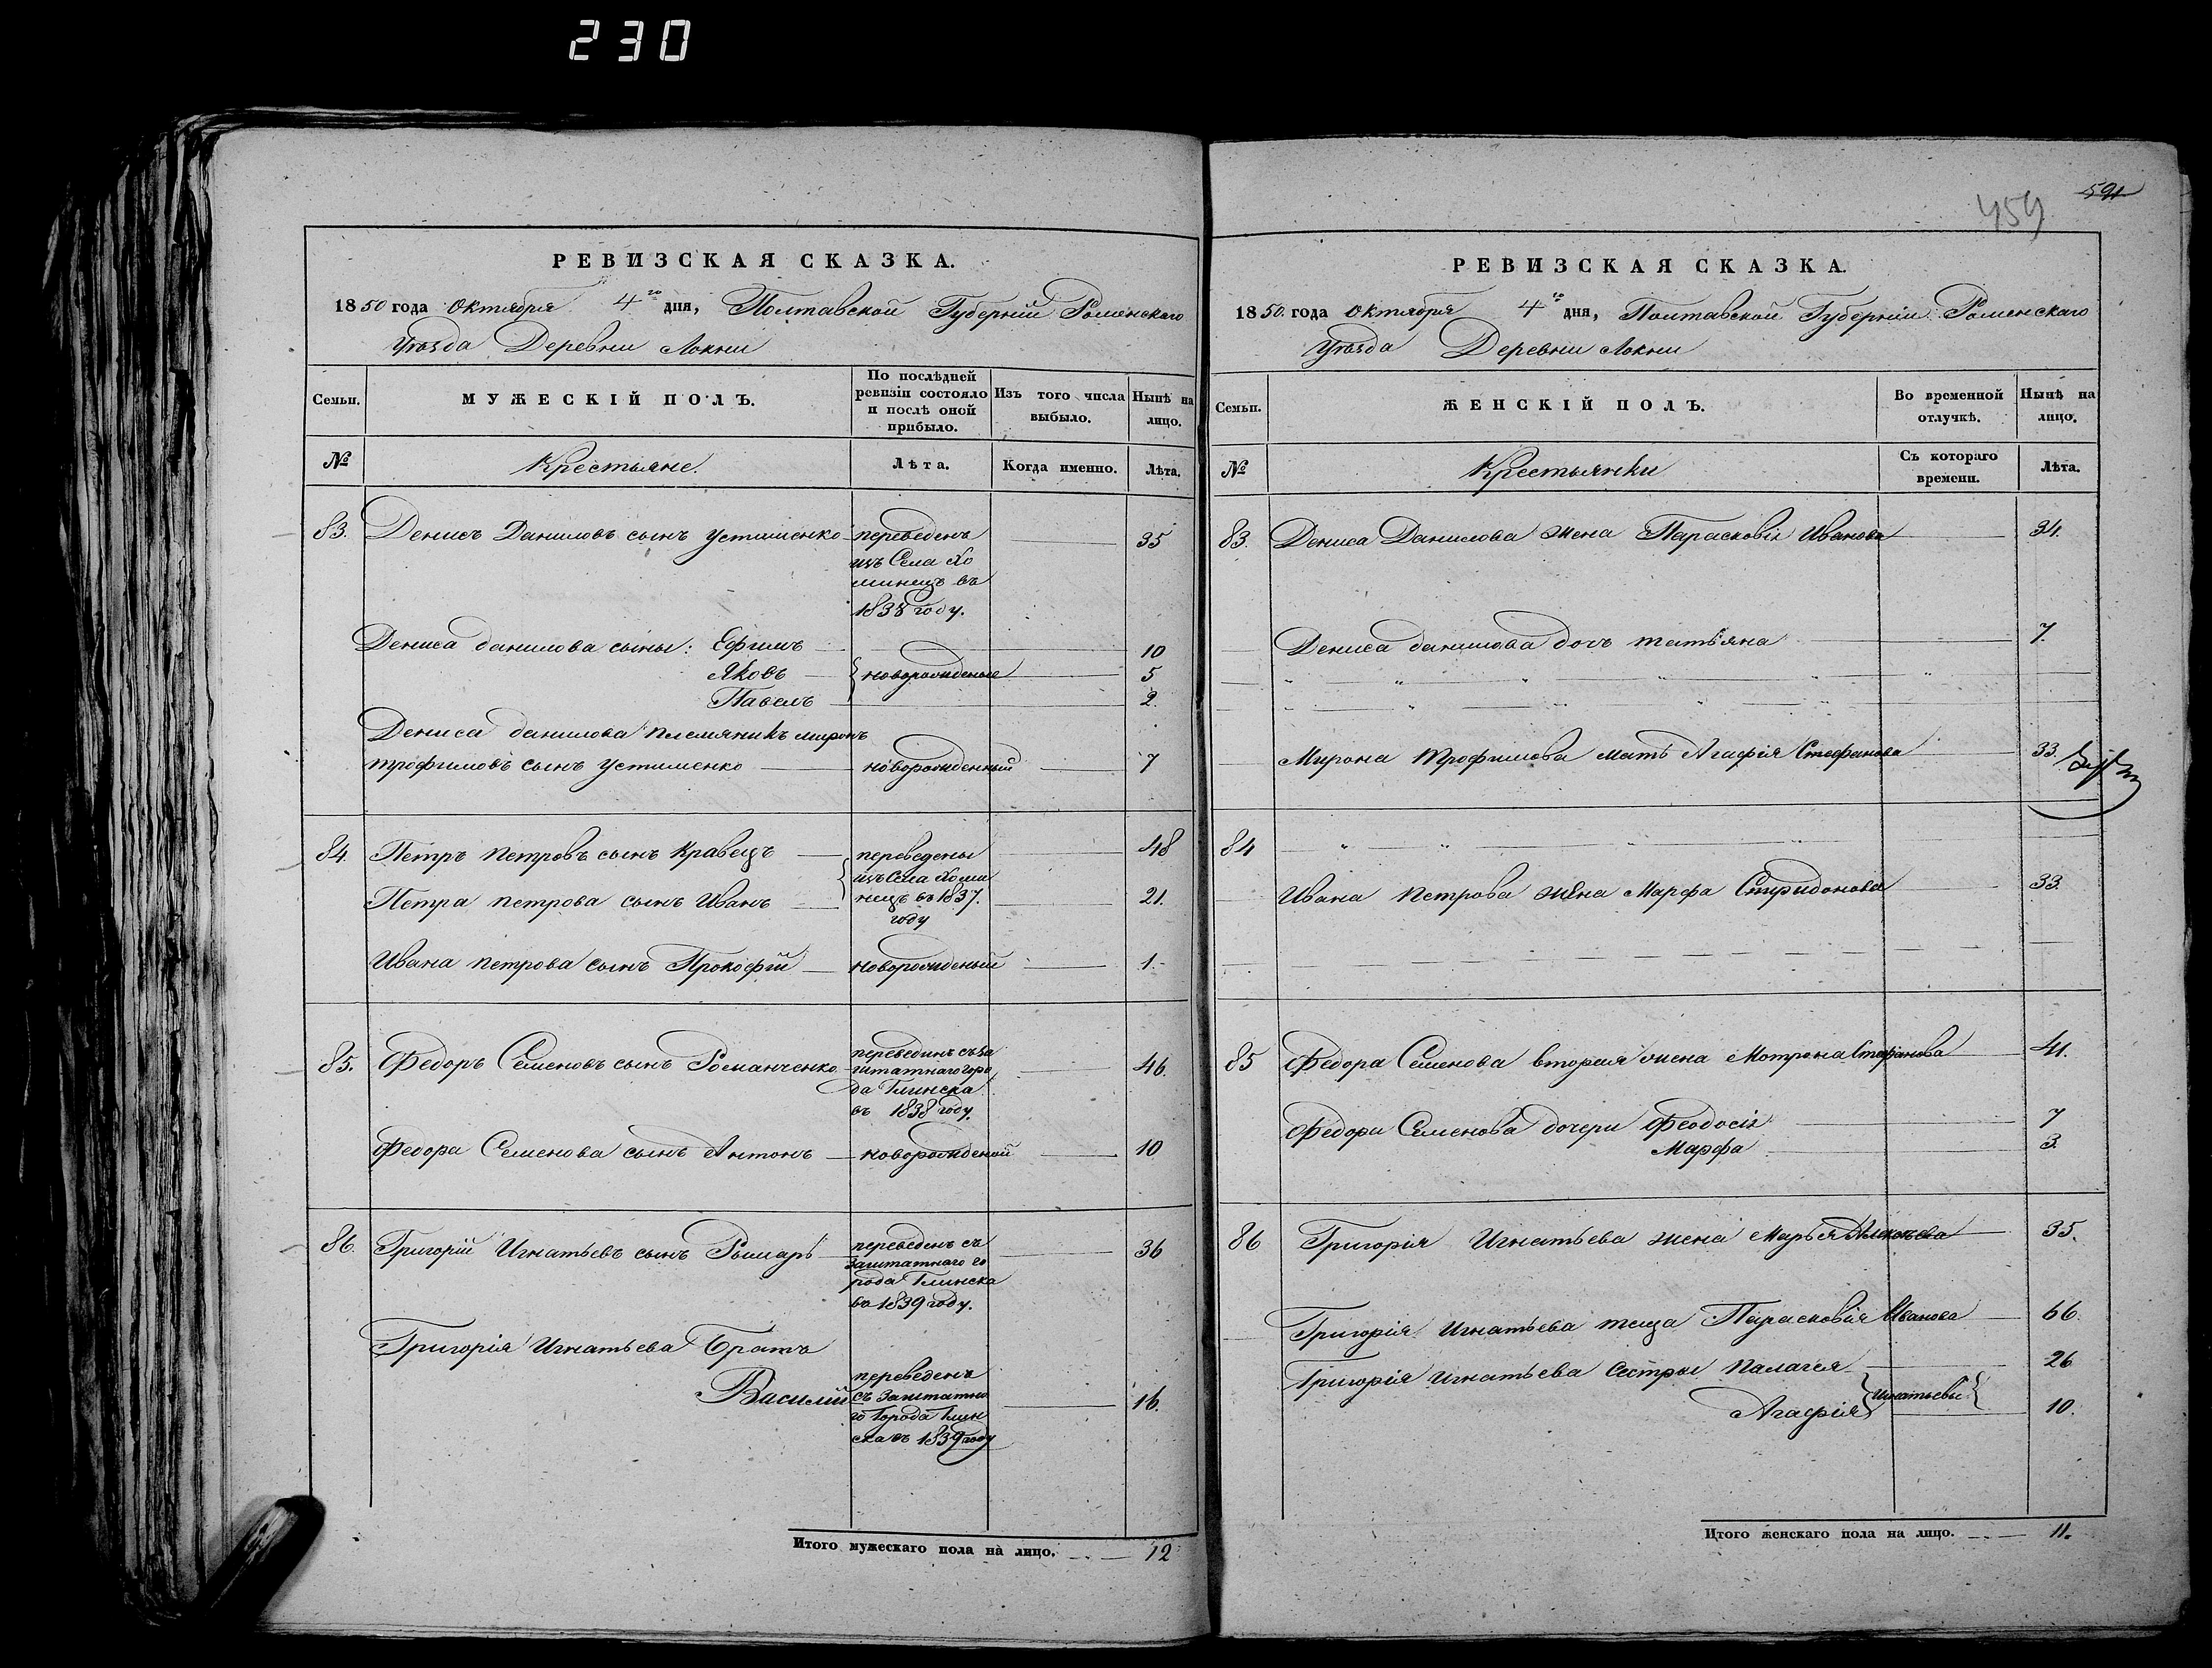 230
РЕВИЗСКАЯ СКАЗКА.
1850 года Октября 4го дня, Полтавской Губерніи Роменскаго
Уѣзда Деревни Локни
Семьи.
МУЖЕСКІЙ ПОЛЪ.
По послѣдней
ревизіи состояло
и послѣ оной
прибыло.
Изъ того числа
выбыло.
Нынѣ на
лицо.
№
Крестьяне.
Лѣта.
Когда именно.
Лѣта.
83. Денисъ Даниловъ сынъ Устименко переведенъ 35
изъ Села Хо
минецъ въ
1838 году.
Дениса данилова сыны: Ефимъ 10
Яковъ новорожденые 5
Павелъ 2.
Дениса данилова племяникъ миронъ
трофимовъ сынъ устименко новорожденный 7
84. Петръ петровъ сынъ Кравецъ переведены 48
изъ Села Хоми
Петра петрова сынъ Иванъ нецъ въ 1837. 21.
году
Ивана петрова сынъ Прокофій новорожденый 1.
85. Федоръ Семеновъ сынъ Романченко перевединъ съ за 46.
штатнаго горо
да Глинска
въ 1838 году.
Федора Семенова сынъ Антонъ новорожденой 10
86. Григорій Игнатьевъ сынъ Рымарь переведенъ съ 36
заштатнаго го
рода Глинска
въ 1839 году.
Григорія Игнатьева Братъ
переведенъ
Василій съ Заштатна 16.
го Города Глин
ска въ 1839 году
Итого мужескаго пола на лицо. 12
591
459
РЕВИЗСКАЯ СКАЗКА.
1850 года Октября 4го дня, Полтавской Губерніи Роменскаго
Уѣзда Деревни Локни
Семьи.
ЖЕНСКІЙ ПОЛЪ.
Во временной
отлучкѣ.
Нынѣ на
лицо.
№
Крестьянки
Съ котораго
времени.
Лѣта.
83. Дениса Данилова жена Парасковія Иванова 34.
Дениса данилова дочь татьяна 7.
Мирона трофимова мать Агафія Стефанова 33.
84
Ивана петрова жена Марфа Спиридонова 33.
85 Федора Семенова вторая жена Мотрона Стефанова 41.
Федора Семенова дочери Феодосія 7
Марфа 3.
86 Григорія Игнатьева жена Марья 35.
Григорія Игнатьева теща Парасковія Иванова 66.
Григорія игнатьева Сестры Палагея 26
Агафія игнатьевы 10.
Итого женскаго пола на лицо. 11.